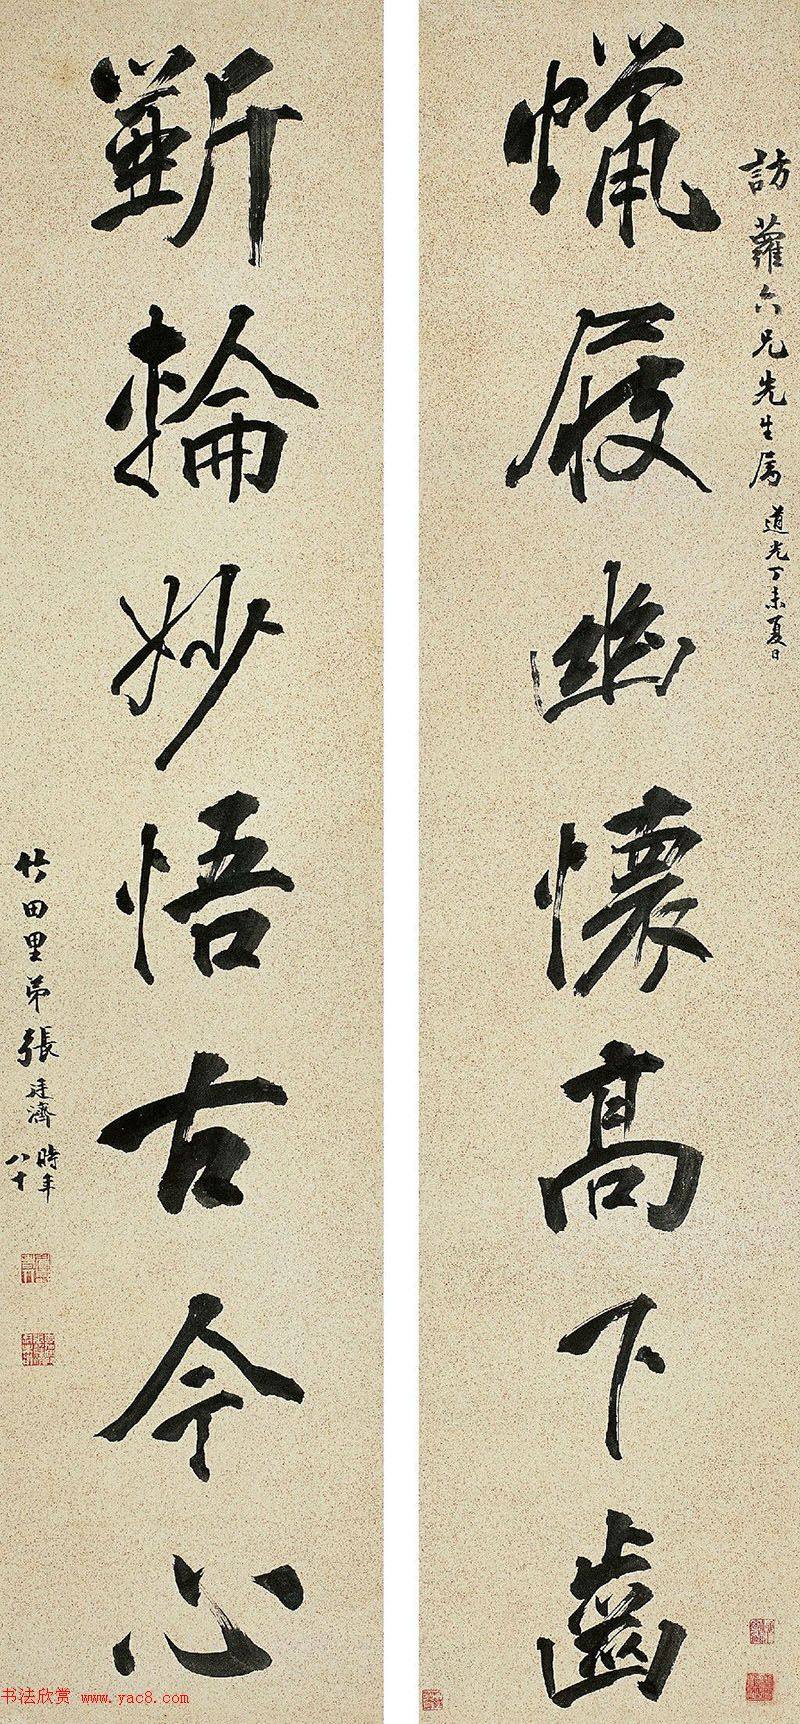 訪蘿六兄先生属 道光丁未夏日
蠟屐幽懷高下齒
斲輪妙悟古今心
竹田里弟張廷濟時年八十
书法欣赏 www.yac8.com